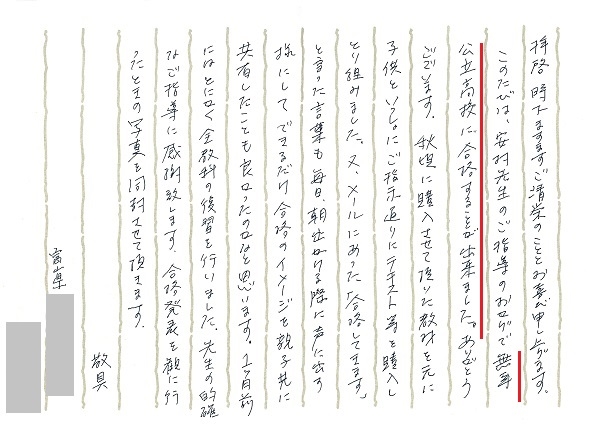 拝啓 時下ますますご清栄のこととお喜び申し上げます。
このたびは、安村先生のご指導のおかげで無事
公立高校に合格することが出来ました。ありがとう
ございます。秋頃に購入させて頂いた教材を元に
子供といっしょにご指示通りにテキスト等を購入し
とり組みました。又、メールにあった「合格してきます」
と言った言葉も毎日、朝出かける際に声に出す
様にしてできるだけ合格のイメージを親子共に
共有したことも良かったのかなと思います。1ヶ月前
にはとにかく全教科の復習を行いました。先生の的確
なご指導に感謝致します。合格発表を観に行
ったときの写真を同封させて頂きます。
敬具
富山県